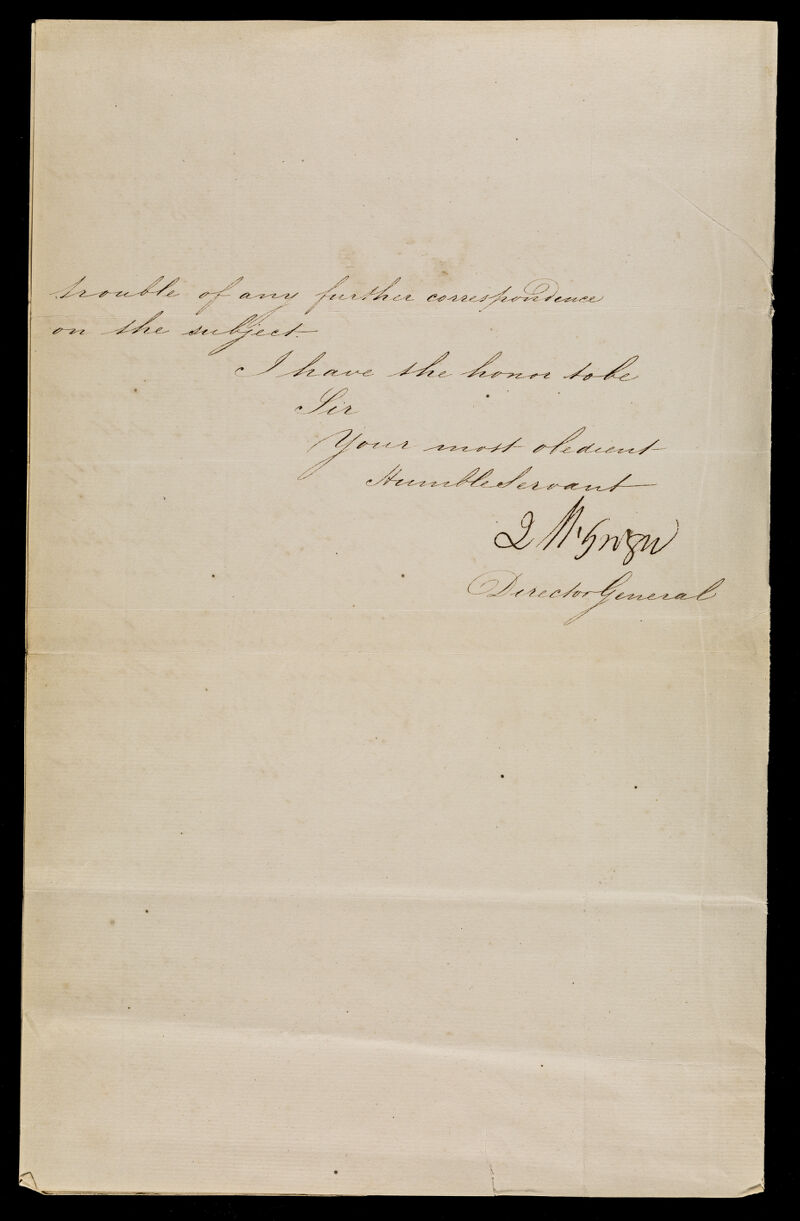 trouble of any further correspondence
on the subject.
I have the honor to be
Sir
Your most obedient
Humble Servant
J McGrigor
Director General